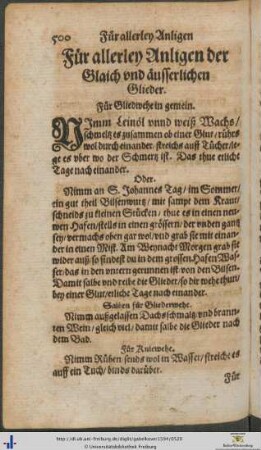 500 Für allerley Anligen
Für allerley Anligen der
Glaich vnd äusserlichen
Glieder.
Für Gliedwehe in gemein.
NImm Leinöl vnnd weiß Wachs/
schmeltz es zusammen ob einer Glut/ rührs
wol durch einander/ streichs auff Tücher/ le-
ge es vber wo der Schmertz ist. Das thue etlich
Tage nach einander.
Oder.
Nimm an S. Johannes Tag/ im Sommer/
ein gut theil Bilsenwurtz/ mit sampt dem Kraut/
schneids zu kleinen Stücken/ thue es in einen ne-
wen Hafen/ stells in einen grössern/ der vnden gantz
sey/ vermachs oben gar wol/ vnd grab sie mit einan-
der in einen Mist. Am Weynacht Morgen grab sie
wider auß/ so findest du in dem grossen Hafen Was-
ser/ das in den vntern gerunnen ist von den Bilsen.
Damit salbe vnd reibe die Glieder/ so dir wehe thun/
bey einer Glut/ etliche Tage nach einander.
Salben für Gliederwehe.
Nimm außgelassen Dachsschmaltz/ vnd brann-
ten Wein/ gleich viel/ damit salbe die Glieder nach
dem Bad.
Für Kniewehe.
Nimm Rüben/ seuds wol in Wasser/ streiche es
auff ein Tuch/ binds darüber.
Für